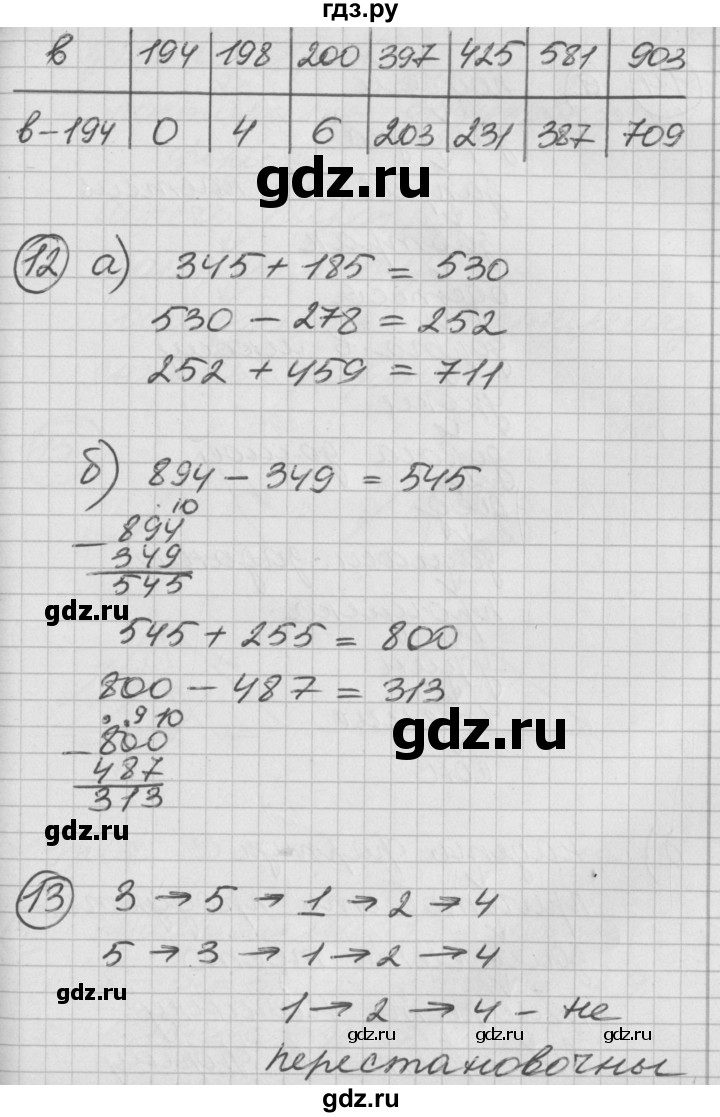 гдз.ру
в 194 198 200 397 425 581 903
в-194 0 4 6 203 231 387 709
gdz.ru
12 а) 345 + 185 = 530
530 - 278 = 252
252 + 459 = 711
б) 894 - 349 = 545
. 10
- 894
349
545
gdz.ru
545 + 255 = 800
800 - 487 = 313
. . 9 10
- 800
487
313
gdz.ru
gdz.ru
13 3 → 5 → 1 → 2 → 4
5 → 3 → 1 → 2 → 4
gdz.ru
1 → 2 → 4 - не
gdz.ru gdz.ru gdz.ru
перестановочны
gdz.ru